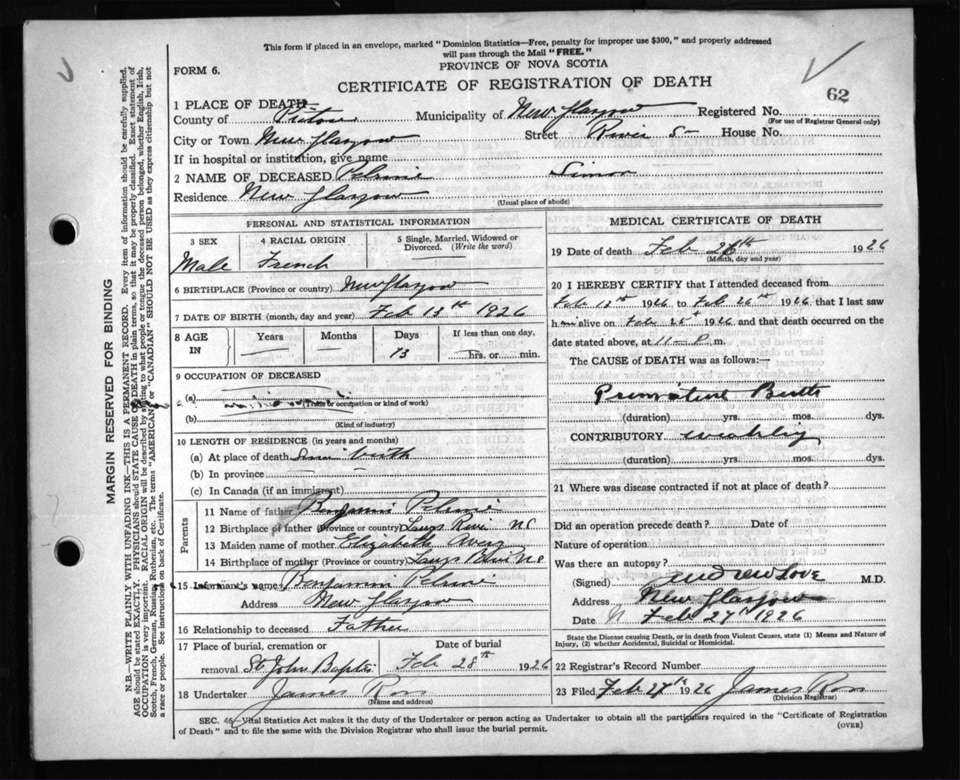 This form if placed in an envelope, marked "Dominion Statistics—Free, penalty for improper use $300," and properly addressed
will pass through the Mail "FREE."
FORM 6.
PROVINCE OF NOVA SCOTIA
CERTIFICATE OF REGISTRATION OF DEATH
62
1 PLACE OF DEATH
County of Pictou Municipality of New Glasgow Registered No.
(For use of Registrar General only)
City or Town New Glasgow Street River St House No.
If in hospital or institution, give name
2 NAME OF DECEASED Simon
Residence New Glasgow
(Usual place of abode)
PERSONAL AND STATISTICAL INFORMATION
3 SEX 4 RACIAL ORIGIN 5 Single, Married, Widowed or Divorced. (Write the word)
Male French
6 BIRTHPLACE (Province or country) New Glasgow
7 DATE OF BIRTH (month, day and year) Feb 13th 1926
8 AGE IN Years Months Days If less than one day,
— — 13 hrs. or min.
9 OCCUPATION OF DECEASED
(a)
(Trade or occupation or kind of work)
(b)
(Kind of industry)
10 LENGTH OF RESIDENCE (in years and months)
(a) At place of death Since birth
(b) In province — —
(c) In Canada (if an immigrant)
Parents
11 Name of father Benjamin
12 Birthplace of father (Province or country) NS
13 Maiden name of mother Elizabeth
14 Birthplace of mother (Province or country) NS
15 Informant's name Benjamin
Address New Glasgow
16 Relationship to deceased Father
17 Place of burial, cremation or Date of burial
removal St John Baptis Feb 28th 1926
18 Undertaker James Ross
(Name and address)
MEDICAL CERTIFICATE OF DEATH
19 Date of death Feb 26th 1926
(Month, day and year)
20 I HEREBY CERTIFY that I attended deceased from
Feb 13th 1926 to Feb 26th 1926 that I last saw
him alive on Feb 1926 and that death occurred on the
date stated above, at 11-P m.
The CAUSE of DEATH was as follows:—
Premature Birth
(duration) yrs. mos. dys.
CONTRIBUTORY
(duration) yrs. mos. dys.
21 Where was disease contracted if not at place of death?
Did an operation precede death? Date of
Nature of operation
Was there an autopsy?
(Signed) Andrew Love M.D.
Address New Glasgow
Date Feb 27 1926
State the Disease causing Death, or in death from Violent Causes, state (1) Means and Nature of
Injury, (2) whether Accidental, Suicidal or Homicidal.
22 Registrar's Record Number
23 Filed Feb 27th 1926 James Ross
(Division Registrar)
SEC. 46—Vital Statistics Act makes it the duty of the Undertaker or person acting as Undertaker to obtain all the particulars required in the "Certificate of Registration
of Death" and to file the same with the Division Registrar who shall issue the burial permit.
(OVER)
MARGIN RESERVED FOR BINDING
N.B.—WRITE PLAINLY WITH UNFADING INK—THIS IS A PERMANENT RECORD. Every item of information should be carefully supplied.
AGE should be stated EXACTLY. PHYSICIANS should STATE CAUSE OF DEATH in plain terms, so that it may be properly classified. Exact statement of
OCCUPATION is very important. RACIAL ORIGIN will be described by stating to what people or tongue the deceased person belonged, whether English, Irish,
Scotch, French, German, Russian, Ruthenian, etc. The terms "AMERICAN" or "CANADIAN" SHOULD NOT BE USED as they express citizenship but not
a race or people. See instructions on back of Certificate.